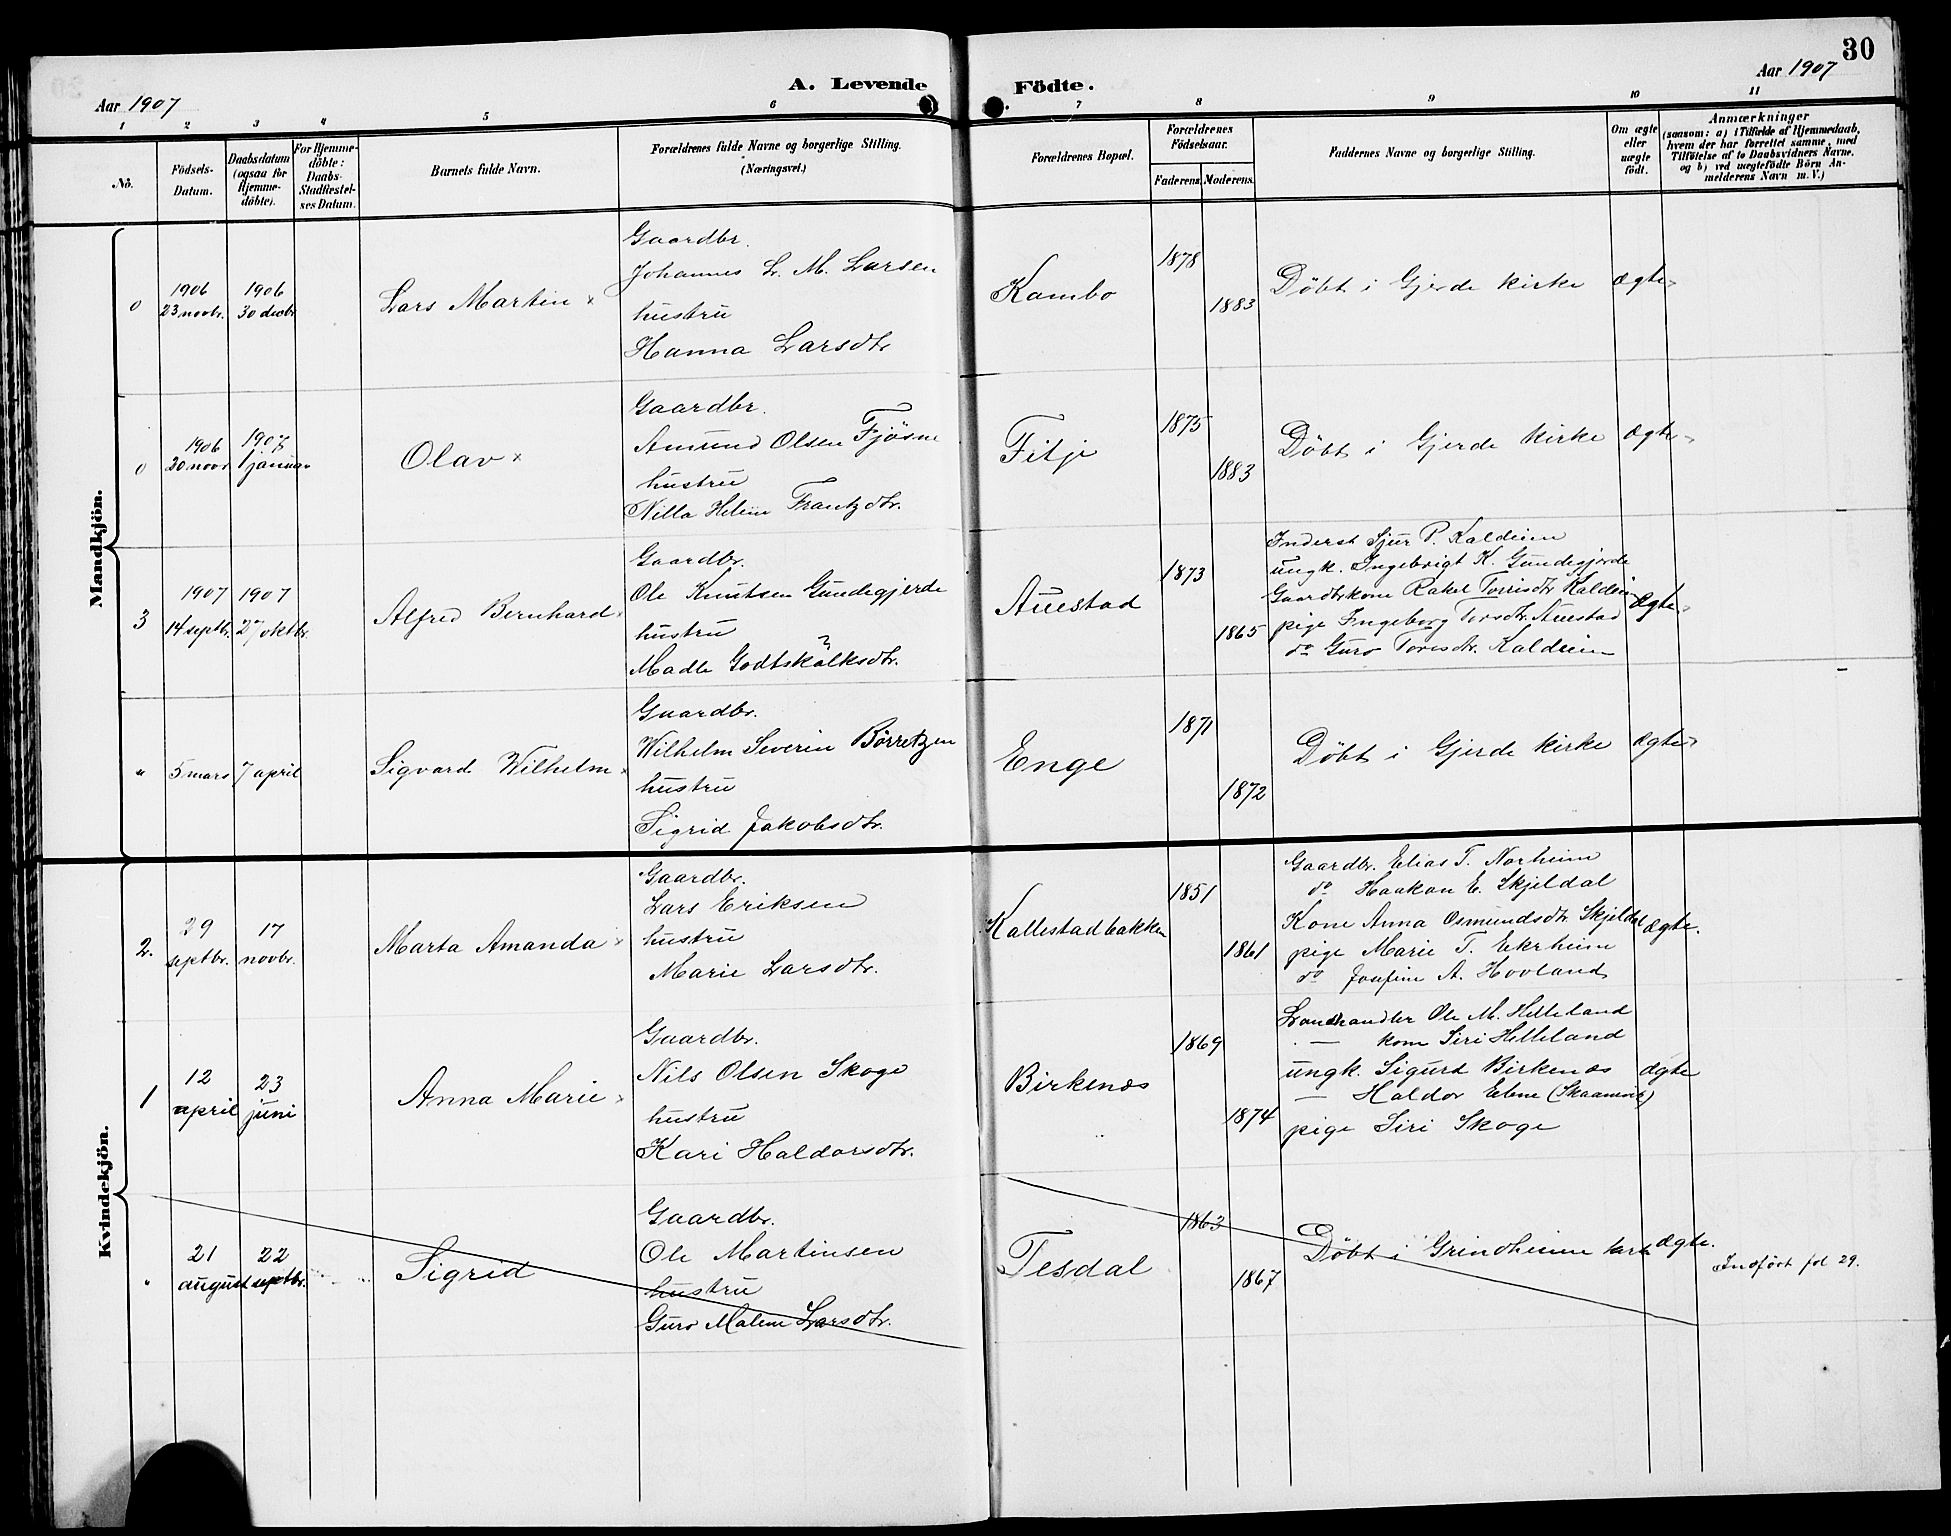 30
Aar 1907
A. Levende
Födte.
Aar 1907
1 2 3 4 5 6 7 8 9 10 11
No.
Födsels-
Datum.
Daabsdatum
(ogsaa for
Hjemme-
döbte).
For Hjemme-
döbte:
Daabs-
Stadfæstel-
ses Datum.
Barnets fulde Navn.
Forældrenes fulde Navne og borgerlige Stilling.
(Næringsvei.)
Forældrenes Bopæl.
Forældrenes
Födselsaar.
Faderens. Moderens.
Faddernes Navne og borgerlige Stilling.
Om ægte
eller
uægte
født.
Anmærkninger
(saasom: a) i Tilfælde af Hjemmedaab,
hvem der har forrettet samme, med
Tilföielse af to Daabsvidners Navne,
og b) ved uægtefödte Börn An-
melderens Navn m. V.)
Mandkjön.
0
1906
23 novbr.
1906
30 decbr
Lars Martin x
Gaardbr.
Johannes L. M. Larsen
hustru
Hanna Larsdtr
Kambo
1878
1883
Døbt i Gjerde kirke
ægte
0
1906
20 novr
1907
1 januar
Olav x
Gaardbr.
Amund Olsen Fjøsne
hustru
Nilla Helene Frantzdtr.
Fitje
1875
1883
Døbt i Gjerde kirke
ægte
3
1907
14 septbr.
1907
27 oktbr.
Alfred Bernhard x
Gaardbr.
Ole Knutsen Gundegjerde
hustru
Madla Godtskalksdtr.
Auestad
1873
1865
Inderst Sjur P. Kaldeim
ungk. Ingebrigt K. Gundegjerde
Gaardbrkone Rakel Torrisdtr Kaldeim
pige Ingeborg Torsdtr. Auestad
do Guro Torisdtr. Kaldeim
ægte
"
5 mars
7 april
Sigvard Wilhelm x
Gaardbr.
Wilhelm Severin Børretzen
hustru
Sigrid Jakobsdtr.
Enge
1871
1872
Døbt i Gjerde kirke
ægte
Kvindekjön.
2.
29
septbr.
17
novbr.
Marta Amanda x
Gaardbr.
Lars Eriksen
hustru
Marie Larsdtr.
Kallestadbakken
1851
1861
Gaardbr. Elias T. Norheim
do Haakon E. Skjeldal
Kone Anna Osmundsdtr Skjeldal
pige Marie T. Ekrheim
do Josefine A. Hovland
ægte.
1
12
april
23
juni
Anna Marie x
Gaardbr.
Nils Olsen Skoge
hustru
Kari Haldorsdtr.
Birkenæs
1869
1874
Landhandler Ole M. Helleland
— kone Siri Helleland
ungk. Sigurd Birkenæs
— Haldor Ebne (Skaanevik)
pige Siri Skoge
ægte
"
21
august
22
septbr.
Sigrid
Gaardbr.
Ole Martinsen
hustru
Guro Malene Larsdtr.
Tesdal
1863
1867
Døbt i Grindheim kirke
ægte.
Indført fol 29.